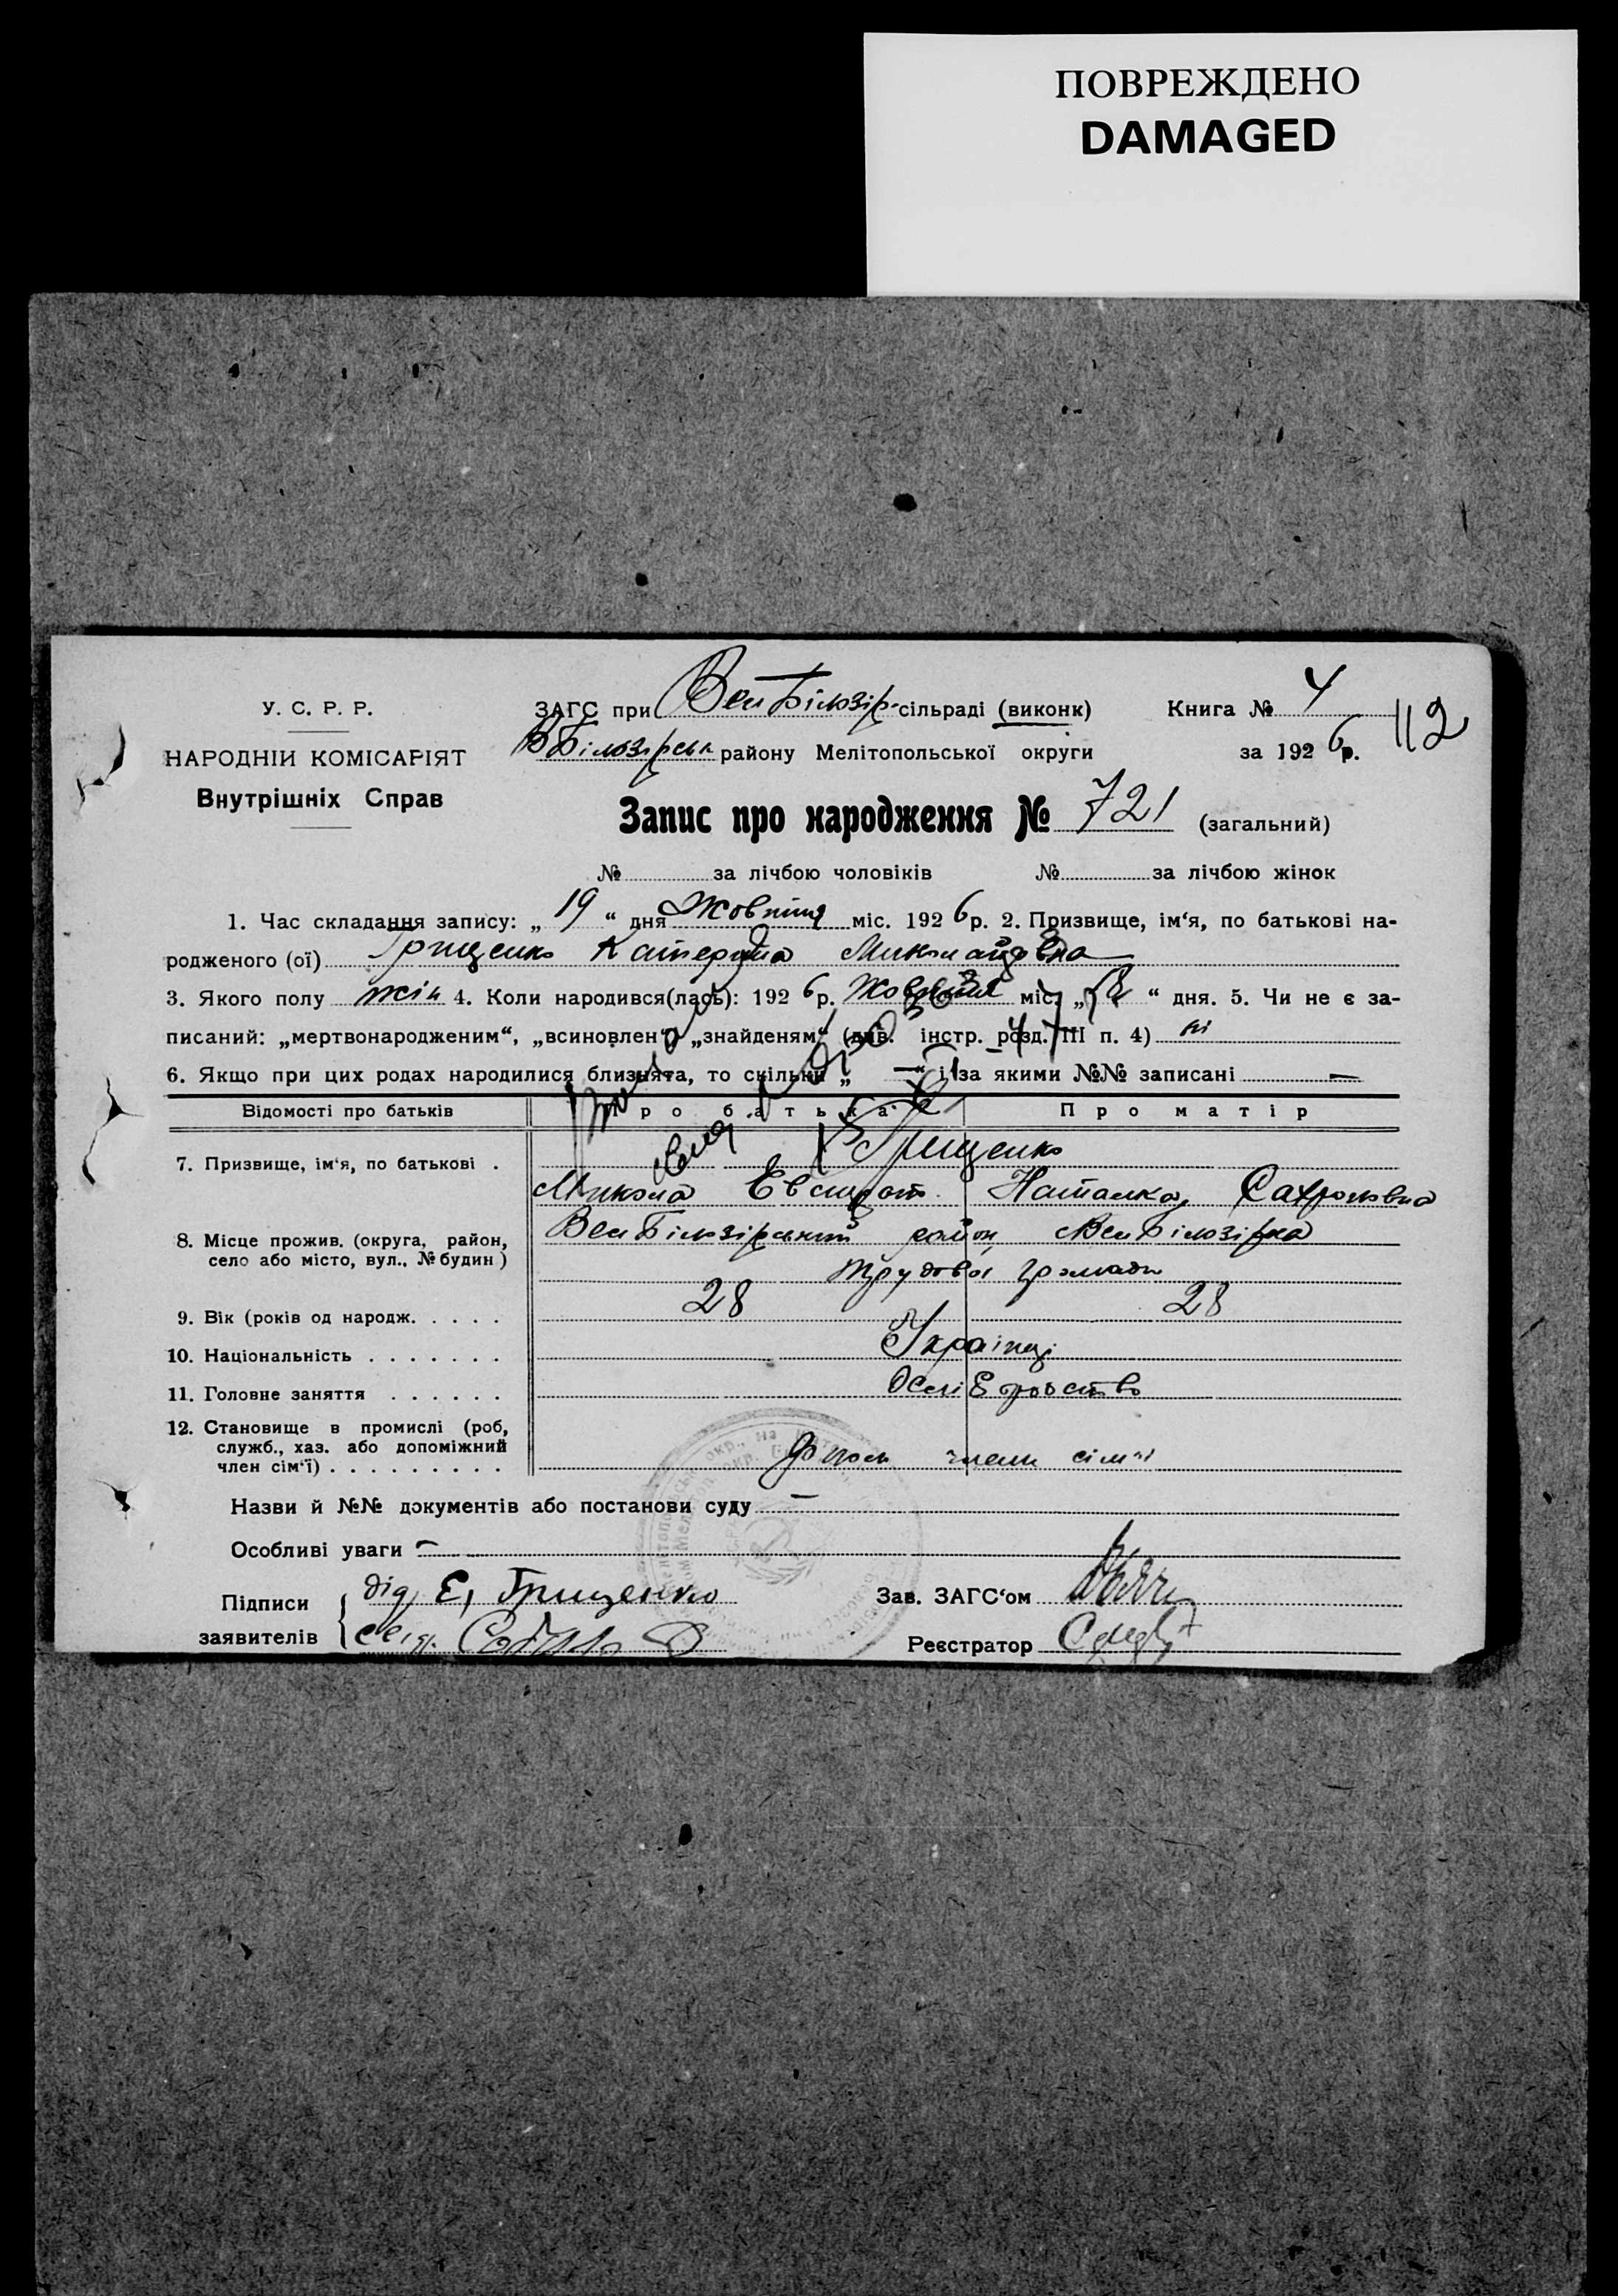 ПОВРЕЖДЕНО
DAMAGED
У. С. Р. Р.
НАРОДНІЙ КОМІСАРІЯТ
Внутрішніх Справ
ЗАГС при Вел Білозір- сільраді (виконк)
В Білозірськ району Мелітопольської округи
Книга № 4
за 1926 р.
112
Запис про народження № 721 (загальний)
№ за лічбою чоловіків № за лічбою жінок
1. Час складання запису: „ 19 “ дня Жовтня міс. 1926 р. 2. Призвище, ім‘я, по батькові на-
родженого (ої) Грищенко Катерина Миколаївна
3. Якого полу жін 4. Коли народився(лась): 1926 р. Жовтня міс. „ “ дня. 5. Чи не є за-
писаний: „мертвонародженим“, „всиновлен“, „знайденям“ (див. інстр. розд. III п. 4) ні
6. Якщо при цих родах народилися близнята, то скільки „ — “ і за якими №№ записані —
Відомості про батьків Про батька Про матір
7. Призвище, ім‘я, по батькові . Грищенко
Микола Евстрат. Наталка
8. Місце прожив. (округа, район,
село або місто, вул., № будин)
Вел Білозірський район, Вел Білозірка
Трудової громади
9. Вік (років од народж. . . . . 28 28
10. Національність . . . . . . . Українці
11. Головне заняття . . . . . .
12. Становище в промислі (роб,
служб., хаз. або допоміжний
член сім‘ї) . . . . . . . . .
члени сім'ї
Назви й №№ документів або постанови суду —
Особливі уваги —
Підписи
заявителів
дід Е, Грищенко
свід.
Зав. ЗАГС‘ом
Реєстратор